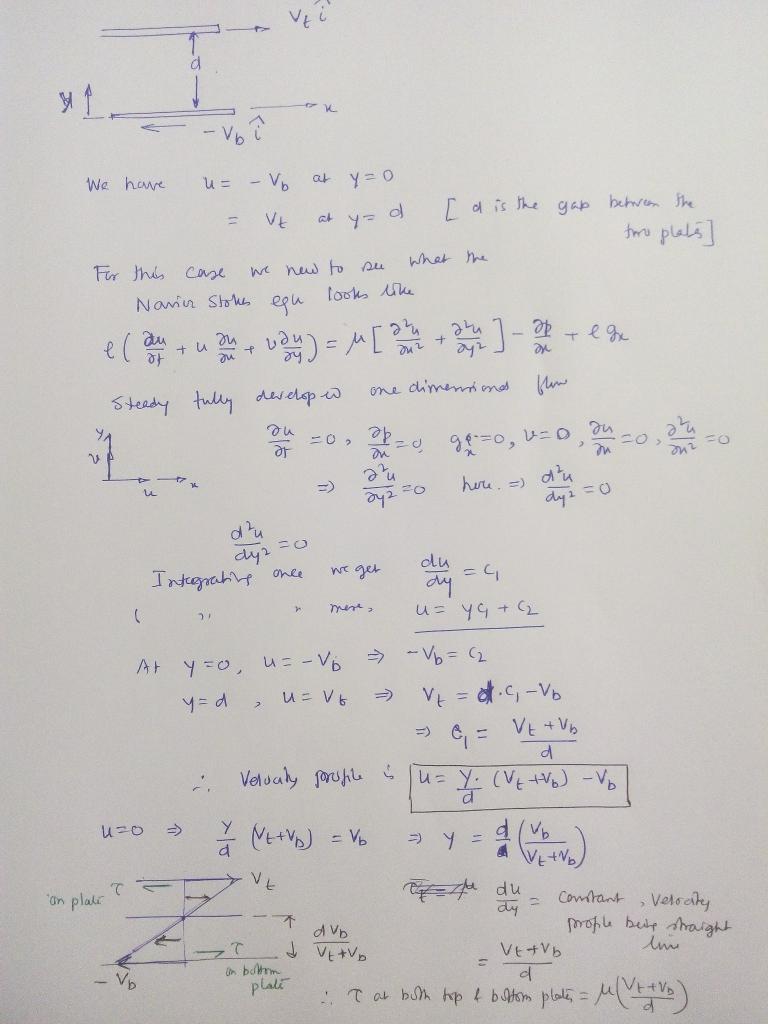 V_t î
d
y
x
- V_b î
We have u = - V_b at y = 0
= V_t at y = d [ d is the gap between the two plates ]
For this case we need to see what the
Navier Stokes equ looks like
ρ ( ∂u/∂t + u ∂u/∂x + v ∂u/∂y ) = μ [ ∂²u/∂x² + ∂²u/∂y² ] - ∂p/∂x + ρ g_x
Steady fully developed one dimensional flow
∂u/∂t = 0, ∂p/∂x = 0, g_x = 0, v = 0, ∂u/∂x = 0, ∂²u/∂x² = 0
y
v
u
x
⇒ ∂²u/∂y² = 0 here. ⇒ d²u/dy² = 0
d²u/dy² = 0
Integrating once we get du/dy = C₁
( ,, ,, more, u = yC₁ + C₂
At y = 0, u = - V_b ⇒ - V_b = C₂
y = d, u = V_t ⇒ V_t = d.C₁ - V_b
⇒ C₁ = (V_t + V_b)/d
∴ Velocity profile is u = y/d . (V_t + V_b) - V_b
u = 0 ⇒ y/d (V_t + V_b) = V_b ⇒ y = d (V_b/(V_t + V_b))
on plate τ
V_t
d V_b/(V_t + V_b)
τ
on bottom
plate
- V_b
du/dy = constant, velocity
profile being straight
line
= (V_t + V_b)/d
∴ τ at both top & bottom plates = μ ((V_t + V_b)/d)